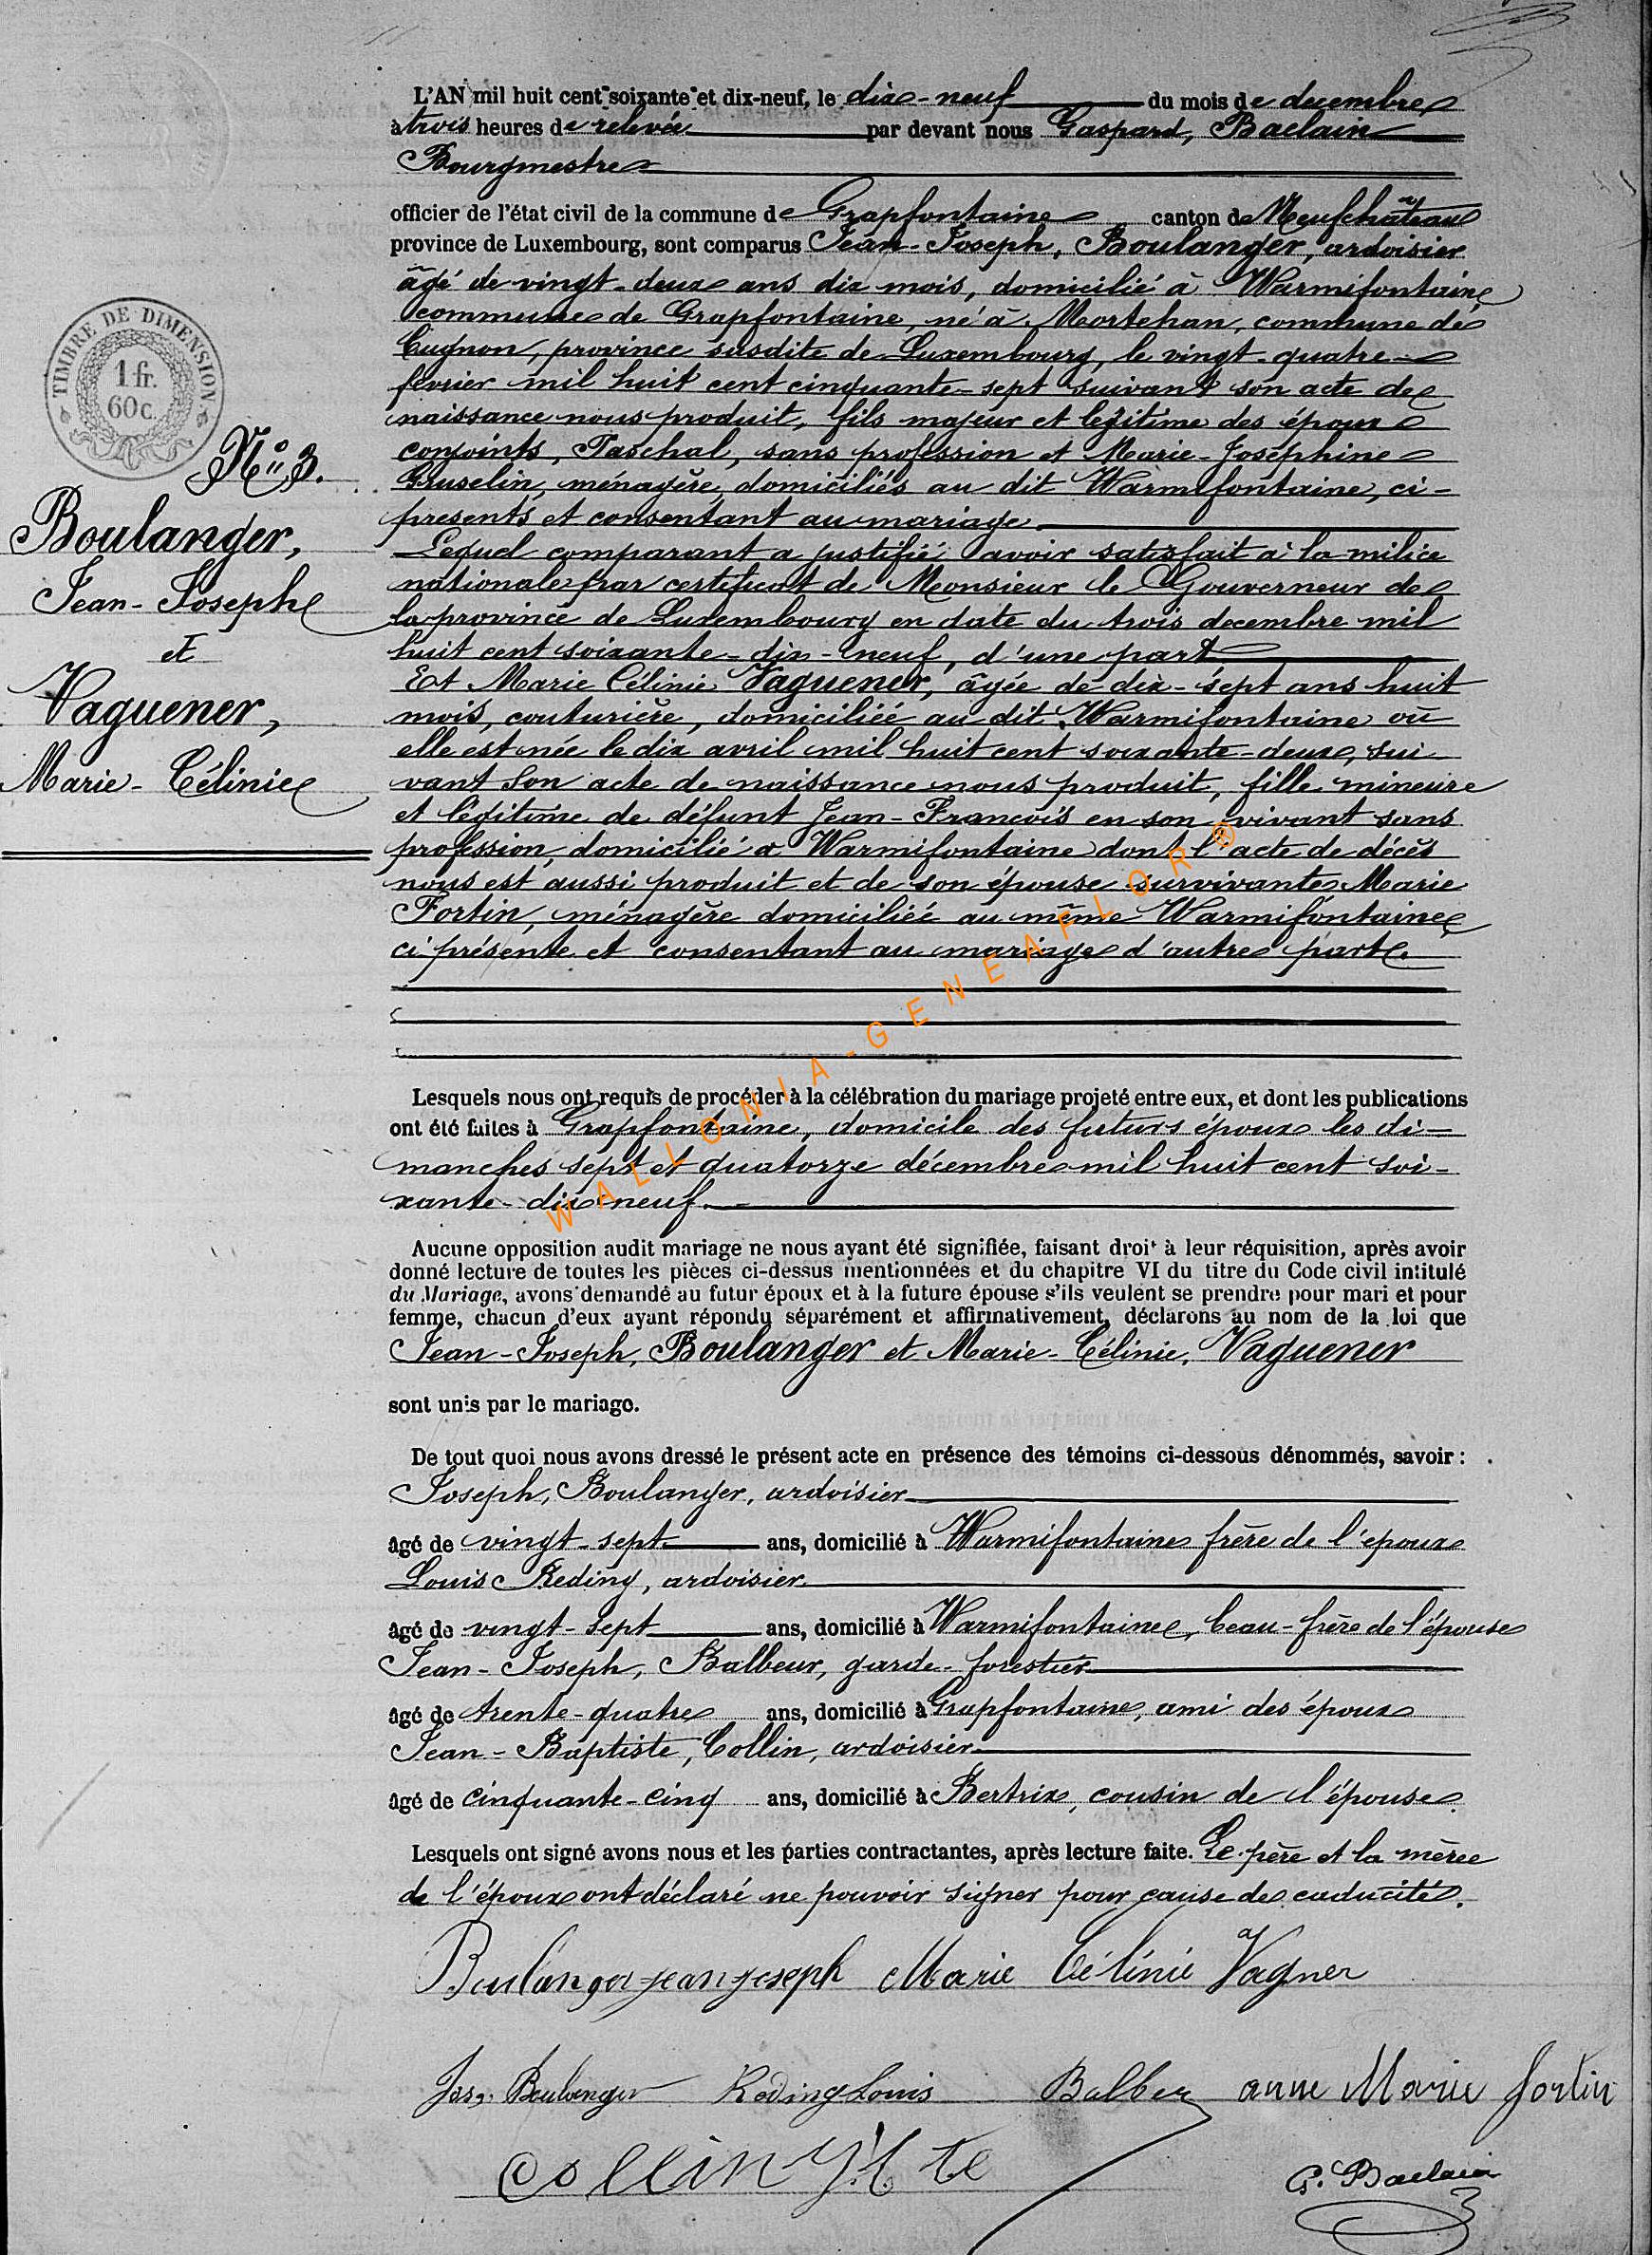 TIMBRE DE DIMENSION
1 fr.
60 c.
N° 3.
Boulanger,
Jean-Joseph
et
Vaguener,
Marie-Célinie
L'AN mil huit cent soixante et dix-neuf, le dix-neuf du mois de decembre
à trois heures de relevée par devant nous Gaspard, Baclain
Bourgmestre
officier de l'état civil de la commune de Grapfontaine canton de Neufchâteau
province de Luxembourg, sont comparus Jean-Joseph, Boulanger, ardoisier
âgé de vingt-deux ans dix mois, domicilié à Warmifontaine
commune de Grapfontaine, né à Mortehan, commune de
Cugnon, province susdite de Luxembourg, le vingt-quatre
fevrier mil huit cent cinquante-sept suivant son acte de
naissance nous produit, fils majeur et legitime des époux
conjoints, Paschal, sans profession et Marie-Joséphine
Guselin, ménagère, domiciliés au dit Warmifontaine, ci-
presents et consentant au mariage
Lequel comparant a justifié avoir satisfait à la milice
nationale par certificat de Monsieur le Gouverneur de
la province de Luxembourg en date du trois decembre mil
huit cent soixante-dix-neuf, d'une part
Et Marie Célinie Vaguener, âgée de dix-sept ans huit
mois, couturière, domiciliée au dit Warmifontaine où
elle est née le dix avril mil huit cent soixante-deux, sui-
vant son acte de naissance nous produit, fille mineure
et légitime de défunt Jean-François en son vivant sans
profession, domicilié à Warmifontaine dont l'acte de décès
nous est aussi produit et de son épouse survivante Marie
Fortin, ménagère domiciliée au même Warmifontaine,
ci présente et consentant au mariage d'autre part.
WALLONIA-GENEAFLOR®
Lesquels nous ont requis de procéder à la célébration du mariage projeté entre eux, et dont les publications
ont été faites à Grapfontaine, domicile des futurs époux les di-
manches sept et quatorze décembre mil huit cent soi-
xante-dix neuf.
Aucune opposition audit mariage ne nous ayant été signifiée, faisant droit à leur réquisition, après avoir
donné lecture de toutes les pièces ci-dessus mentionnées et du chapitre VI du titre du Code civil intitulé
du Mariage, avons demandé au futur époux et à la future épouse s'ils veulent se prendre pour mari et pour
femme, chacun d'eux ayant répondu séparément et affirmativement, déclarons au nom de la loi que
Jean-Joseph, Boulanger et Marie-Célinie, Vaguener
sont unis par le mariage.
De tout quoi nous avons dressé le présent acte en présence des témoins ci-dessous dénommés, savoir :
Joseph, Boulanger, ardoisier
âgé de vingt-sept ans, domicilié à Warmifontaine frère de l'epoux
Louis Reding, ardoisier
âgé de vingt-sept ans, domicilié à Warmifontaine, beau-frère de l'épouse
Jean-Joseph, Balbeur, garde-forestier
âgé de trente-quatre ans, domicilié à Grapfontaine, ami des époux
Jean-Baptiste, Collin, ardoisier
âgé de cinquante-cinq ans, domicilié à Bertrix, cousin de l'épouse.
Lesquels ont signé avons nous et les parties contractantes, après lecture faite. Le père et la mère
de l'époux ont déclaré ne pouvoir signer pour cause de caducité.
Boulanger jean joseph Marie Célinie Vagner
Jos, Boulanger Reding Louis Balbeu anne Marie fortin
Collin J.B te
G. Baclain